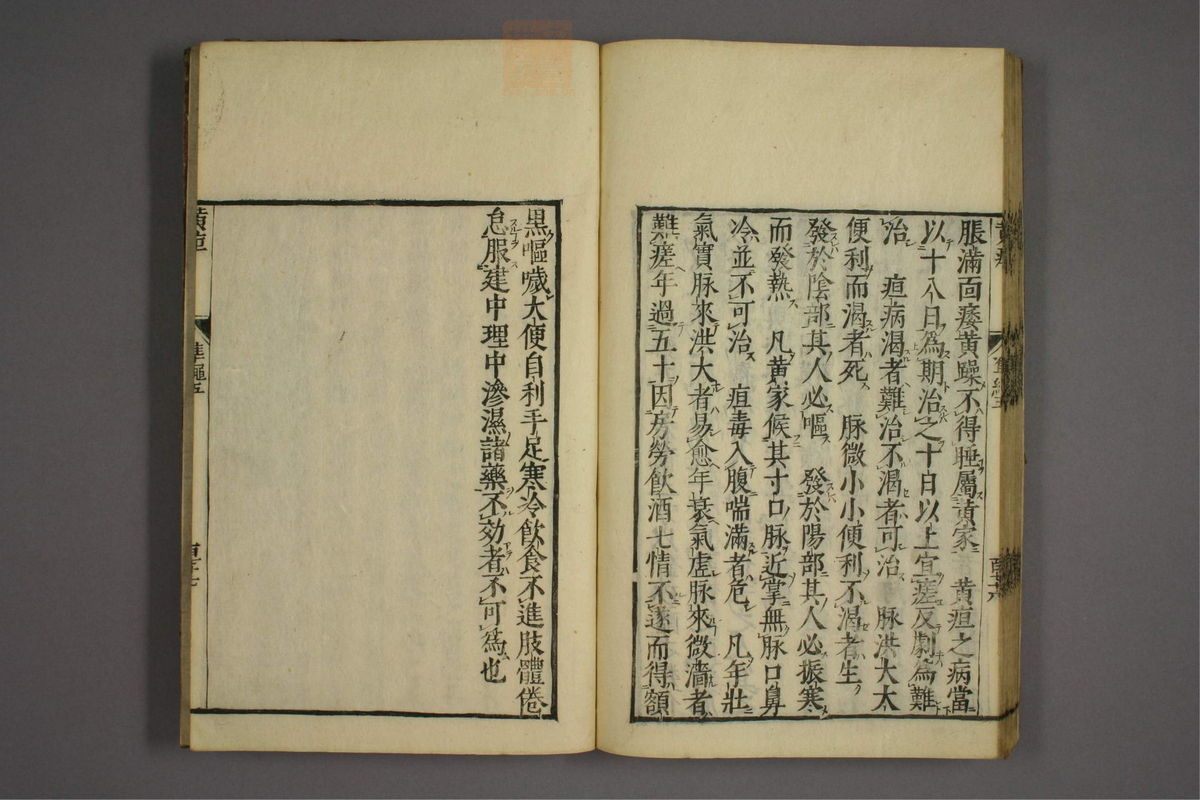 脹滿面痿黃躁不得睡屬黃家　黃疸之病當
以十八日爲期治之十日以上宜瘥反劇爲難
治　疸病渴者難治不渴者可治　脉洪大大
便利而渴者死　脉微小小便利不渴者生
發於陰部其人必嘔　發於陽部其人必振寒
而發熱　凡黃家候其寸口脉近掌無脉口鼻
冷並不可治　疸毒入腹喘滿者危　凡年壯
氣實脉來洪大者易愈年衰氣虛脉來微濇者
難瘥年過五十因房勞飲酒七情不遂而得額
黑嘔噦大便自利手足寒冷飲食不進肢體倦
怠服建中理中滲濕諸藥不効者不可爲也